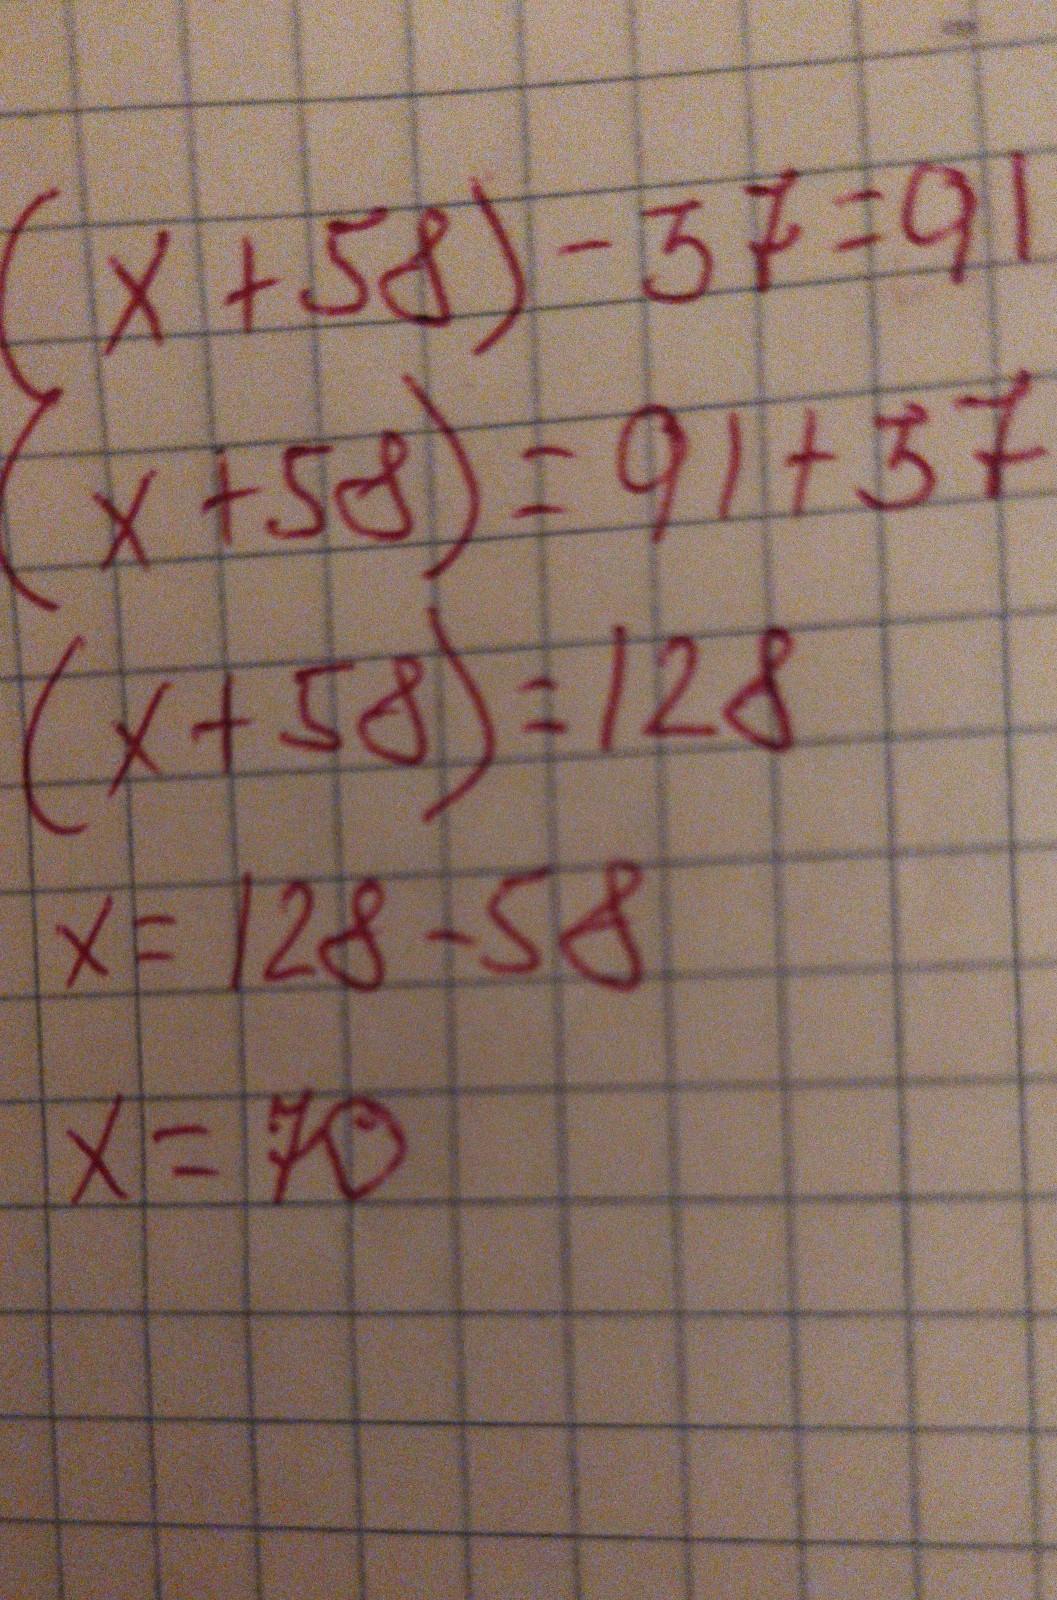 (x+58)-37=91
(x+58)=91+37
(x+58)=128
x=128-58
x=70